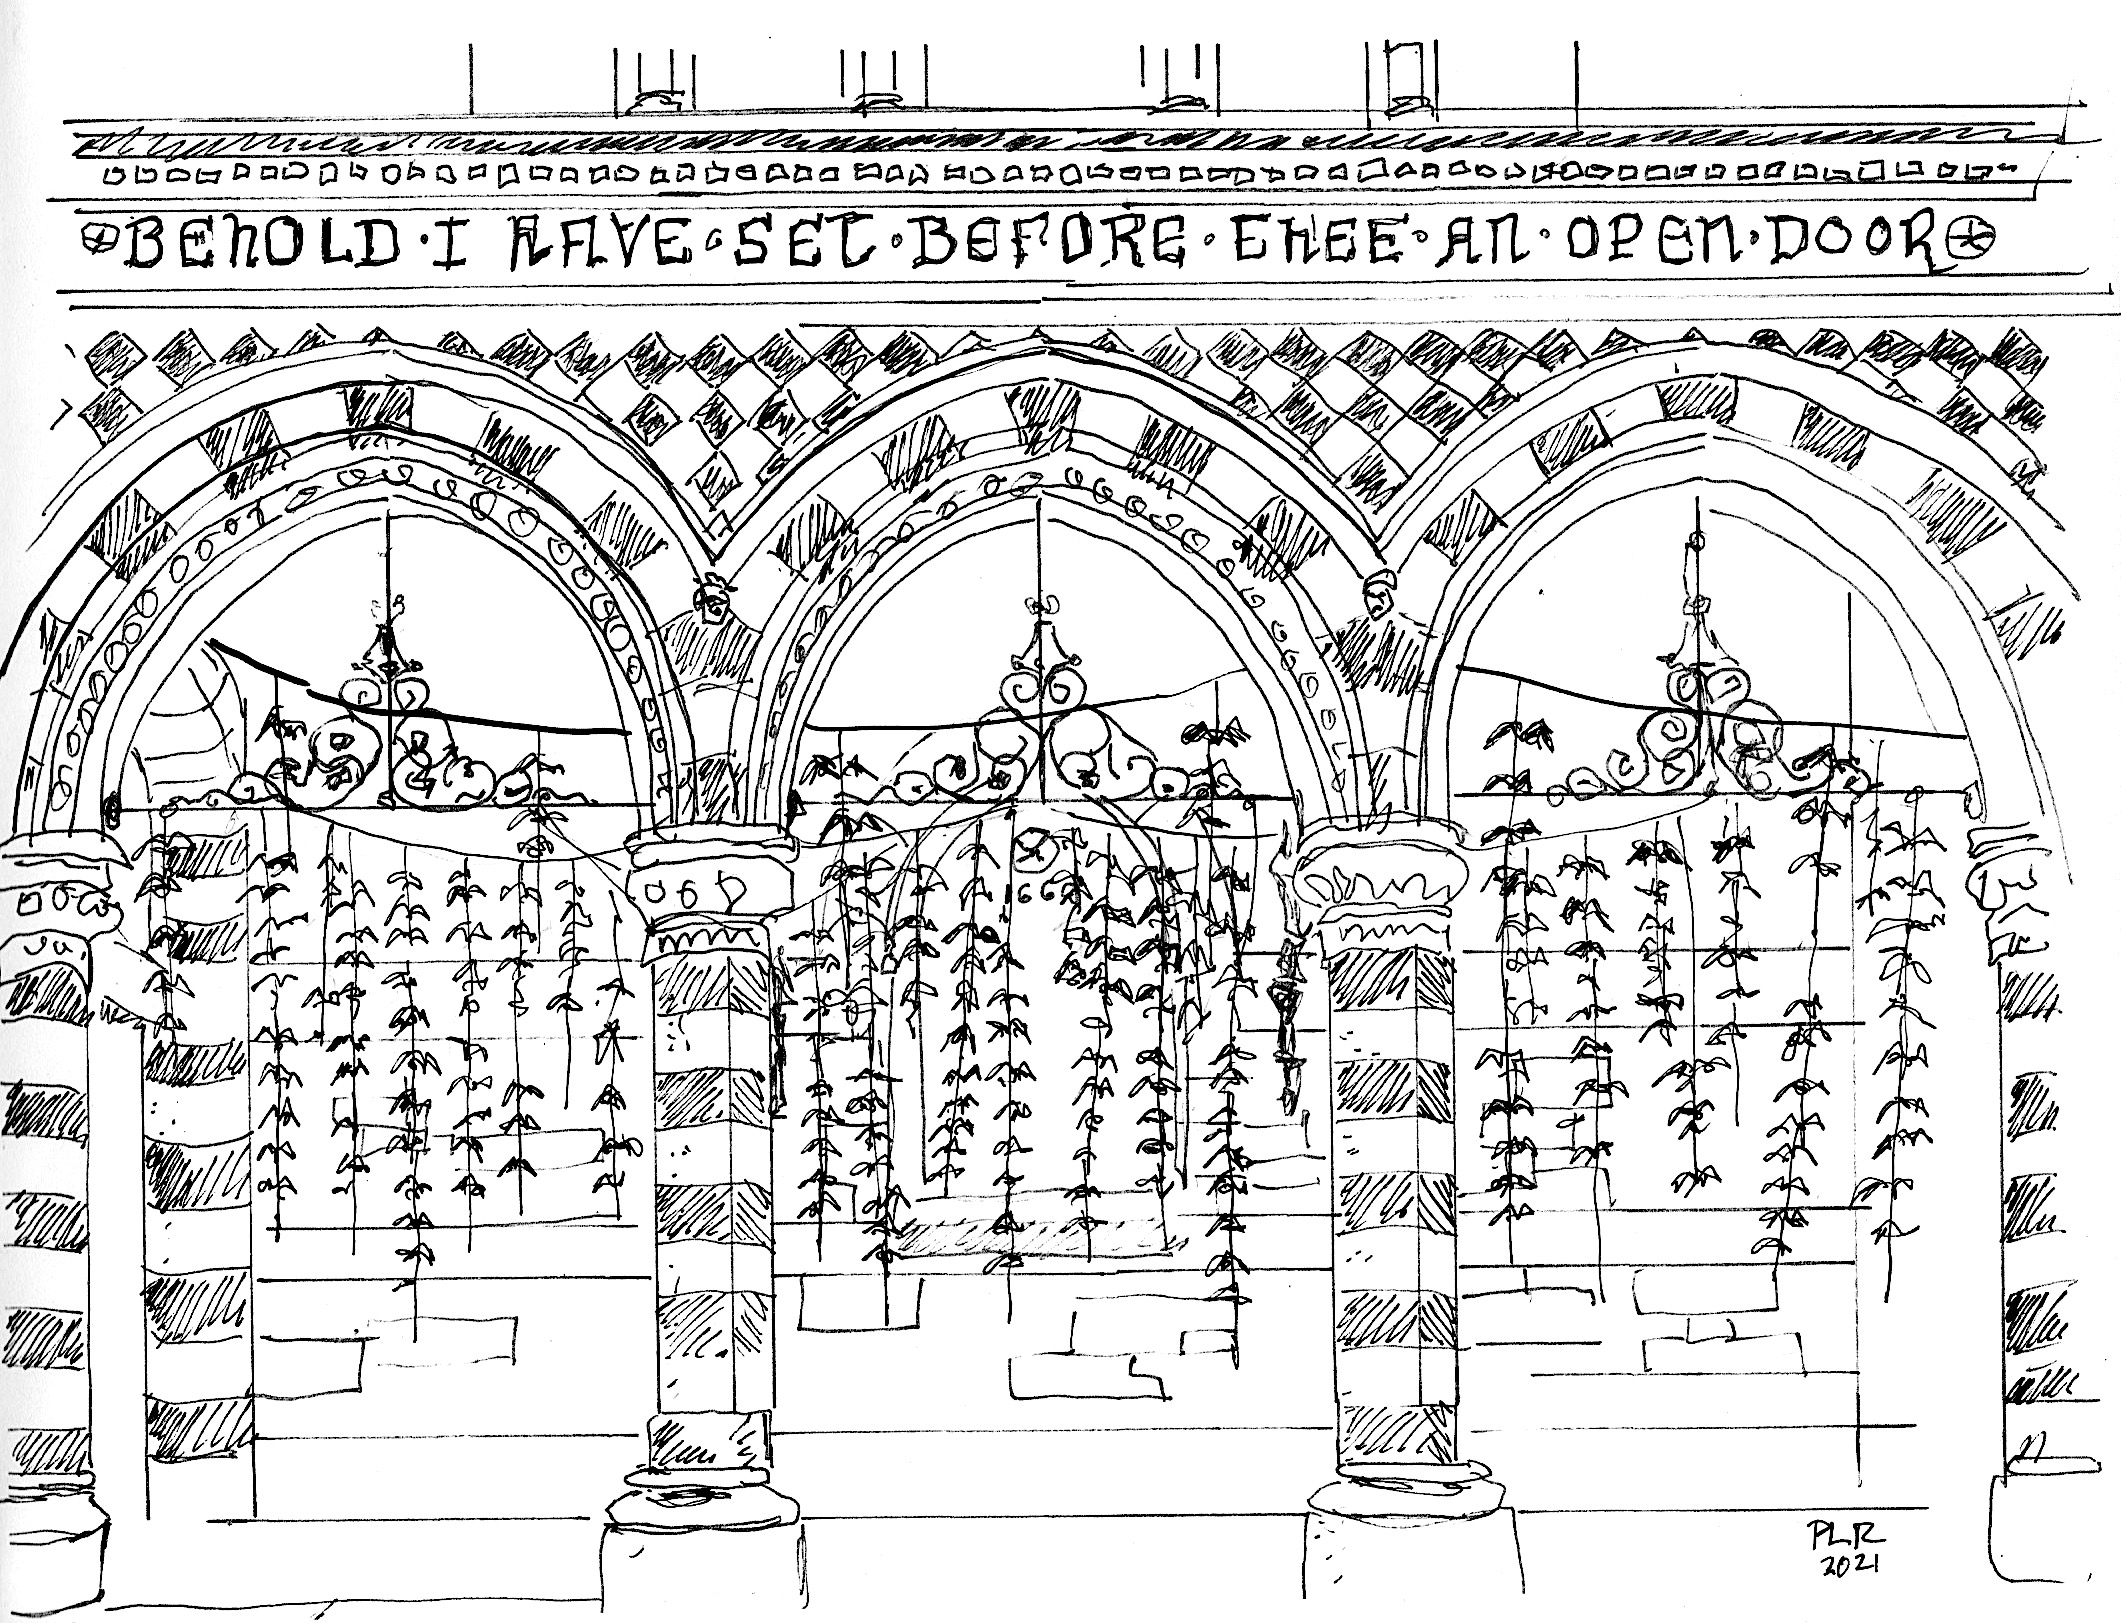 BEHOLD · I HAVE · SET · BEFORE · THEE · AN · OPEN · DOOR
166
PLR
2021